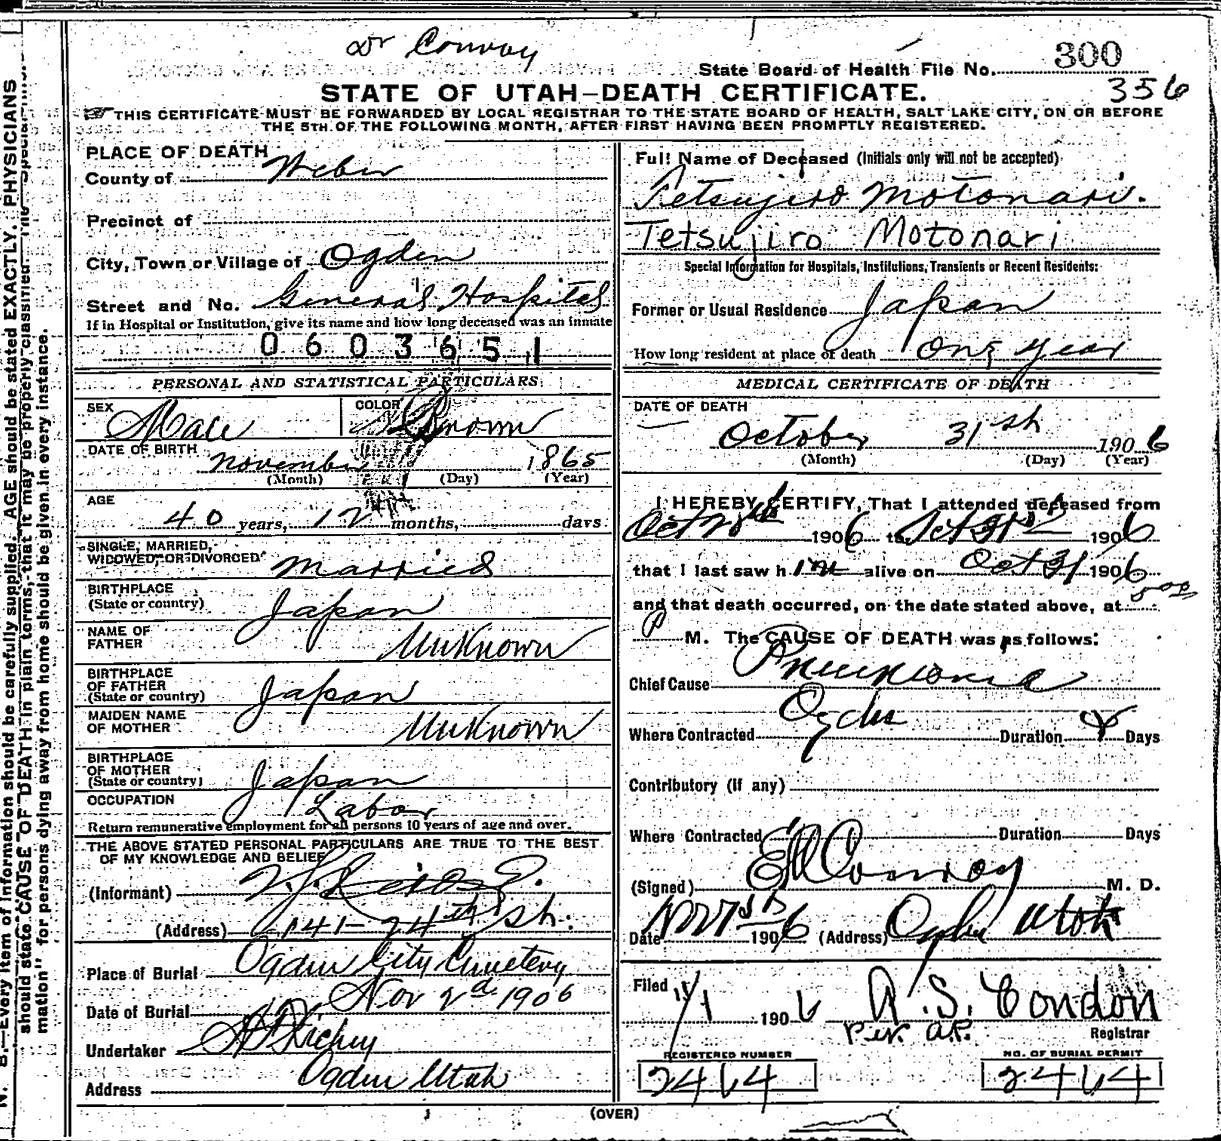 Dr Conroy
State Board of Health File No. 300
356
STATE OF UTAH—DEATH CERTIFICATE.
THIS CERTIFICATE MUST BE FORWARDED BY LOCAL REGISTRAR TO THE STATE BOARD OF HEALTH, SALT LAKE CITY, ON OR BEFORE
THE 5TH OF THE FOLLOWING MONTH, AFTER FIRST HAVING BEEN PROMPTLY REGISTERED.
PLACE OF DEATH
County of Weber
Precinct of
City, Town or Village of Ogden
Street and No. General Hospital
If in Hospital or Institution, give its name and how long deceased was an inmate
0603651
PERSONAL AND STATISTICAL PARTICULARS
SEX Male
COLOR Brown
DATE OF BIRTH November 1865
(Month) (Day) (Year)
AGE 40 years, 12 months, days
SINGLE, MARRIED,
WIDOWED, OR DIVORCED Married
BIRTHPLACE
(State or country) Japan
NAME OF
FATHER UnKnown
BIRTHPLACE
OF FATHER
(State or country) Japan
MAIDEN NAME
OF MOTHER UnKnown
BIRTHPLACE
OF MOTHER
(State or country) Japan
OCCUPATION Labor
Return remunerative employment for all persons 10 years of age and over.
THE ABOVE STATED PERSONAL PARTICULARS ARE TRUE TO THE BEST
OF MY KNOWLEDGE AND BELIEF
(Informant)
(Address) 2141-24th St.
Place of Burial Ogden City Cemetery
Date of Burial Nov 2nd 1906
Undertaker Richey
Address Ogden Utah
Full Name of Deceased (Initials only will not be accepted)
Tetsujiro Motonari.
Tetsujiro Motonari
Special Information for Hospitals, Institutions, Transients or Recent Residents:
Former or Usual Residence Japan
How long resident at place of death One year
MEDICAL CERTIFICATE OF DEATH
DATE OF DEATH
October 31st 1906
(Month) (Day) (Year)
I HEREBY CERTIFY, That I attended deceased from
Oct 1906 to Oct 31st 1906
that I last saw him alive on Oct 31 1906
and that death occurred, on the date stated above, at 5:00
P M. The CAUSE OF DEATH was as follows:
Chief Cause Pneumonia
Where Contracted Ogden Duration 8 Days
Contributory (if any)
Where Contracted Duration Days
(Signed) E H Conroy M. D.
Date Nov 1st 1906 (Address) Ogden Utah
Filed 11/1 1906 A. S. Condon
per. a.P. Registrar
REGISTERED NUMBER
2464
NO. OF BURIAL PERMIT
2464
(OVER)
N. B.—Every item of information should be carefully supplied. AGE should be stated EXACTLY. PHYSICIANS
should state CAUSE OF DEATH in plain terms, that it may be properly classified. The "Special Infor-
mation" for persons dying away from home should be given in every instance.